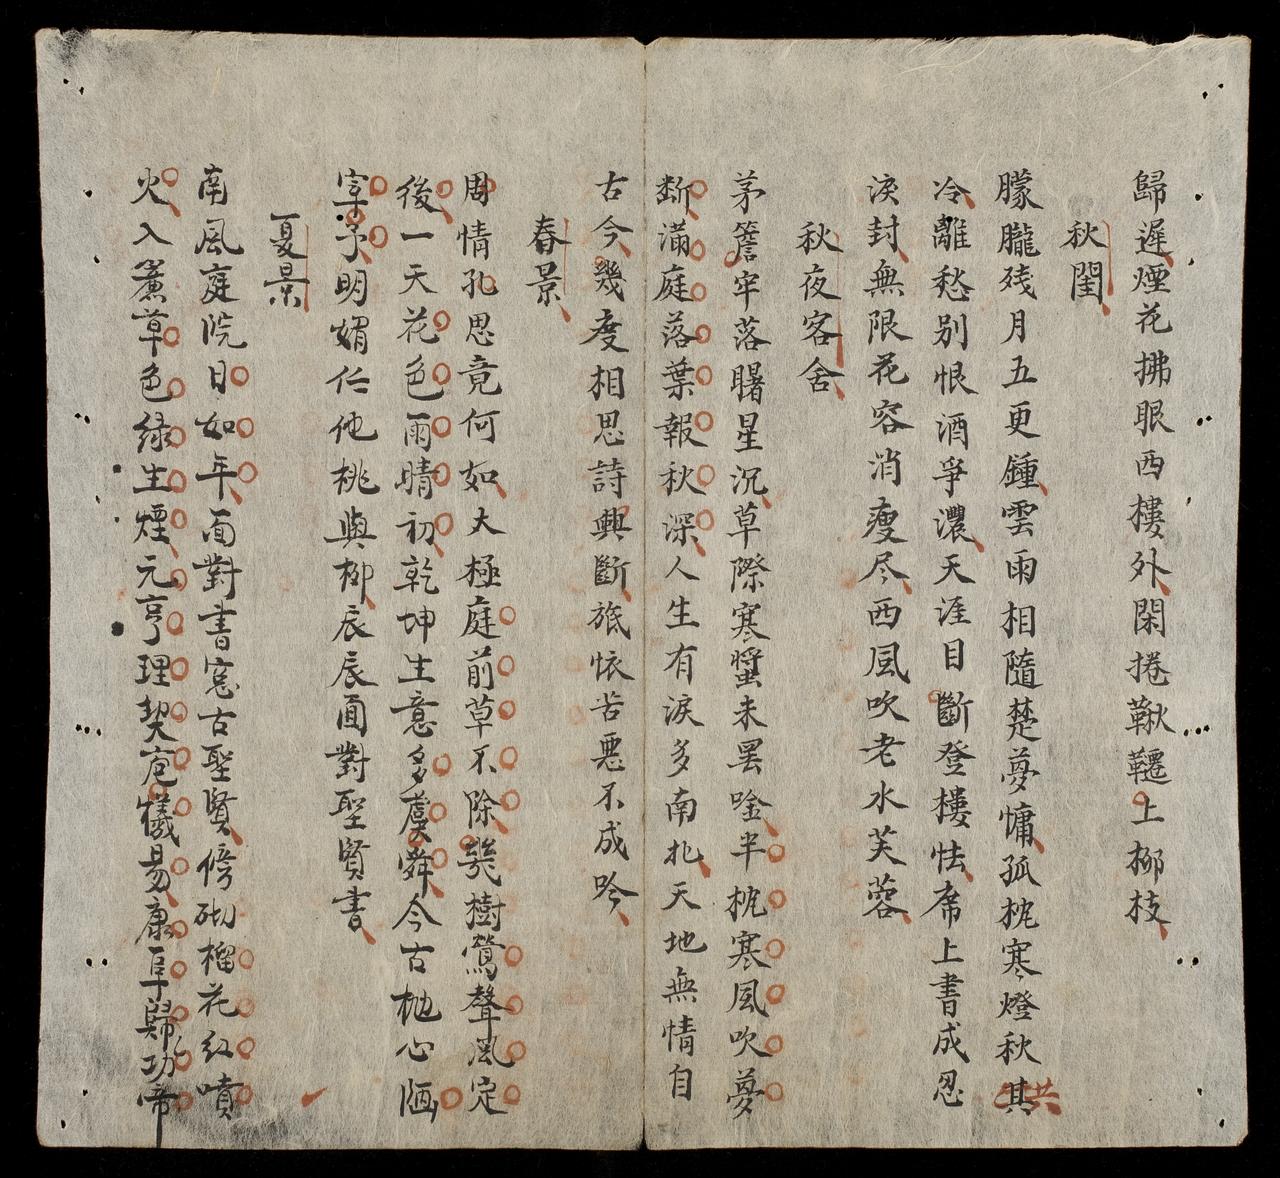 歸遲煙花拂眼西樓外閑捲鞦韆上柳枝
秋閨
朦朧残月五更鍾雲雨相隨楚夢慵孤枕寒燈秋其共
冷離愁別恨酒爭濃天涯目斷登樓怯席上書成忍
淚封無限花容消瘦尽西風吹老水芙蓉
秋夜客舍
茅簷牢落曙星沉草際寒螿未罢吟半枕寒風吹夢
断滿庭落葉報秋深人生有淚多南北天地無情自
古今幾度相思詩興斷旅怀苦悪不成吟
春景
周情孔思竟何如大極庭前草不除幾樹鶯聲風定
後一天花色雨晴初乾坤生意多虞舜今古枇心陋
宰予明媚任他桃與柳辰辰面對聖賢書
夏景
南風庭院日如年面對書窓古聖賢傍砌榴花紅噴
火入簾草色緑生煙元亨理契庖犧易康阜歸功帝